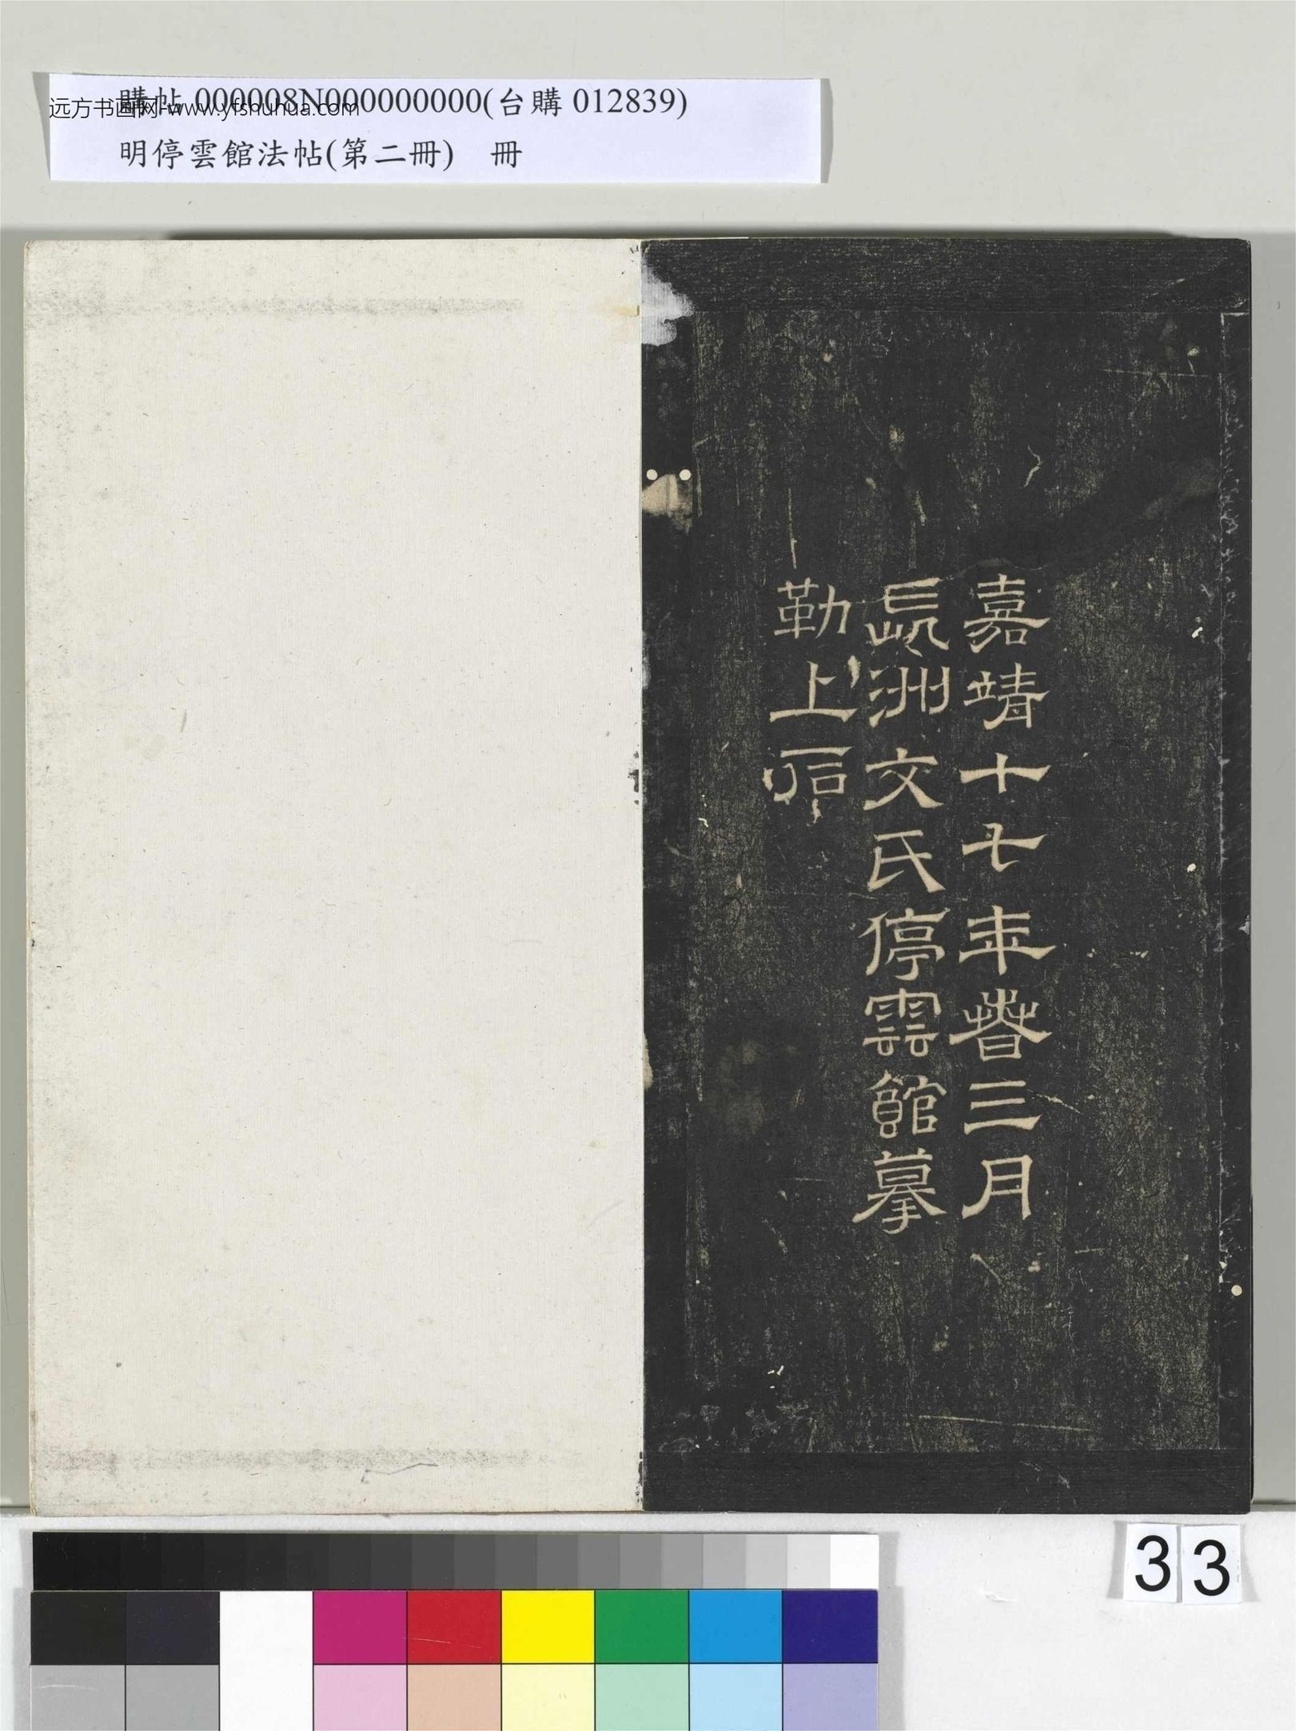 購帖 000008N000000000(台購 012839)
远方书画网-www.yfshuhua.com
明停雲館法帖(第二冊) 冊
嘉靖十七年春三月
長洲文氏停雲館摹
勒上石
33